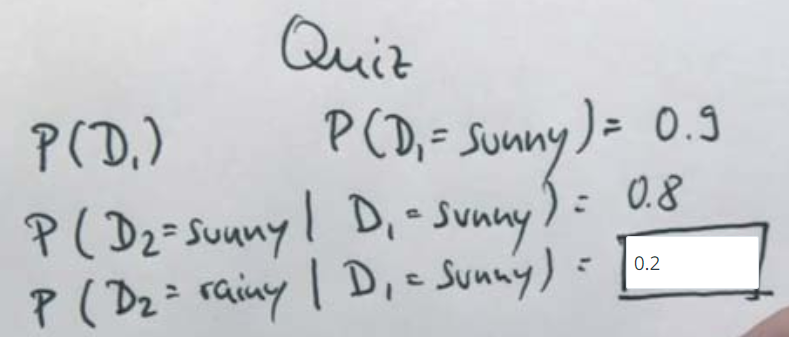 Quiz
P(D₁) P(D₁ = sunny) = 0.9
P(D₂=sunny | D₁=sunny) = 0.8
P(D₂= rainy | D₁= sunny) = 0.2